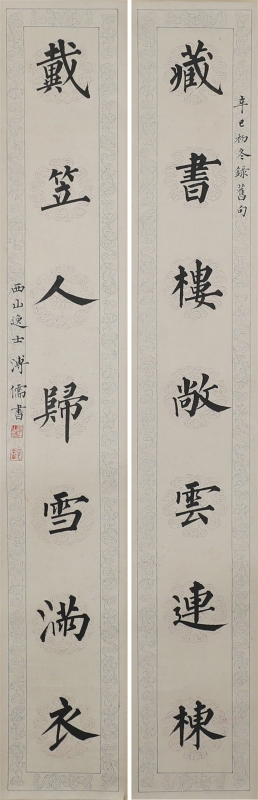 辛巳初冬錄舊句
藏書樓敞雲連棟
戴笠人歸雪滿衣
西山逸士溥儒書